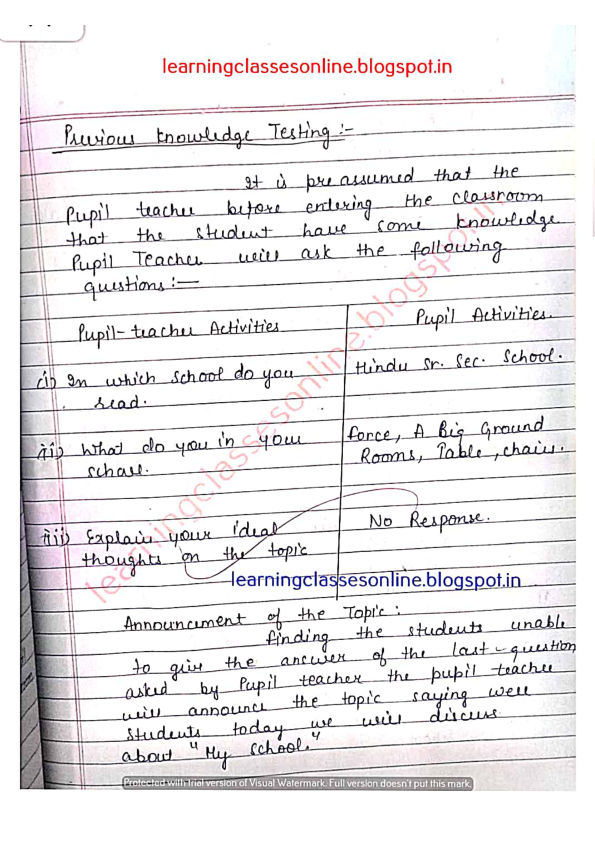 learningclassesonline.blogspot.in
Previous knowledge Testing :-
It is pre assumed that the
Pupil teacher before entering the classroom
that the student have some knowledge
Pupil Teacher will ask the following
questions :—
Pupil-teacher Activities
Pupil Activities.
(i) In which school do you
read.
Hindu Sr. Sec. School.
(ii) What do you in your
force, A Big Ground
Rooms, Table, chairs.
(iii) Explain your ideal
thoughts on the topic
No Response.
learningclassesonline.blogspot.in
learningclassesonline.blogspot.in
Announcement of the Topic :
finding the students unable
to give the answer of the last-question
asked by Pupil teacher the pupil teacher
will announce the topic saying well
students today we will discuss
about "My school."
Protected with trial version of Visual Watermark. Full version doesn't put this mark.